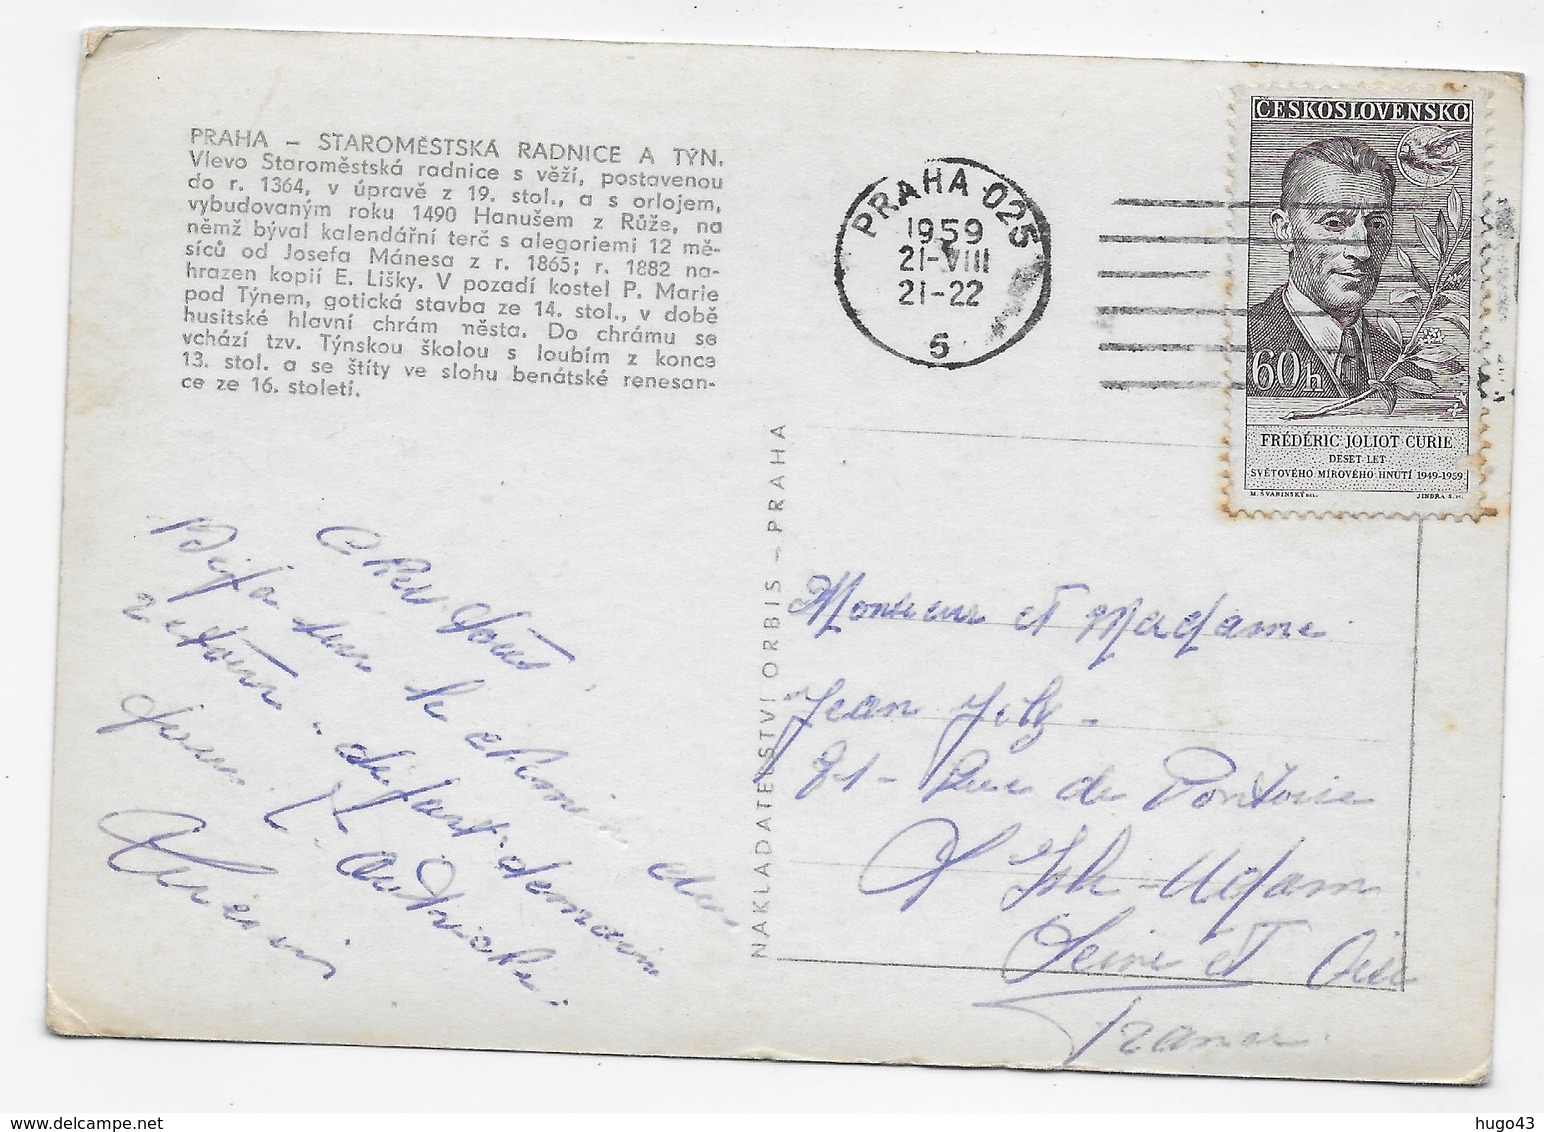 PRAHA – STAROMĚSTSKÁ RADNICE A TÝN.
Vlevo Staroměstská radnice s věží, postavenou
do r. 1364, v úpravě z 19. stol., a s orlojem,
vybudovaným roku 1490 Hanušem z Růže, na
němž býval kalendářní terč s alegoriemi 12 mě-
síců od Josefa Mánesa z r. 1865; r. 1882 na-
hrazen kopií E. Lišky. V pozadí kostel P. Marie
pod Týnem, gotická stavba ze 14. stol., v době
husitské hlavní chrám města. Do chrámu se
vchází tzv. Týnskou školou s loubím z konce
13. stol. a se štíty ve slohu benátské renesan-
ce ze 16. století.
PRAHA 025
1959
21-VIII
21-22
6
ČESKOSLOVENSKO
60h
FRÉDÉRIC JOLIOT CURIE
DESET LET
SVĚTOVÉHO MÍROVÉHO HNUTÍ 1949-1959
M. ŠVABINSKÝ DEL.
JINDRA S. SC.
NAKLADATELSTVÍ ORBIS – PRAHA
Chers Tous.
Déjà sur le chemin du
retour. départ demain
pour l'Autriche.
Monsieur et Madame
Jean
21 - Rue de Pontoise
L'Isle-Adam
Seine et Oise
France.
www.delcampe.net
hugo43